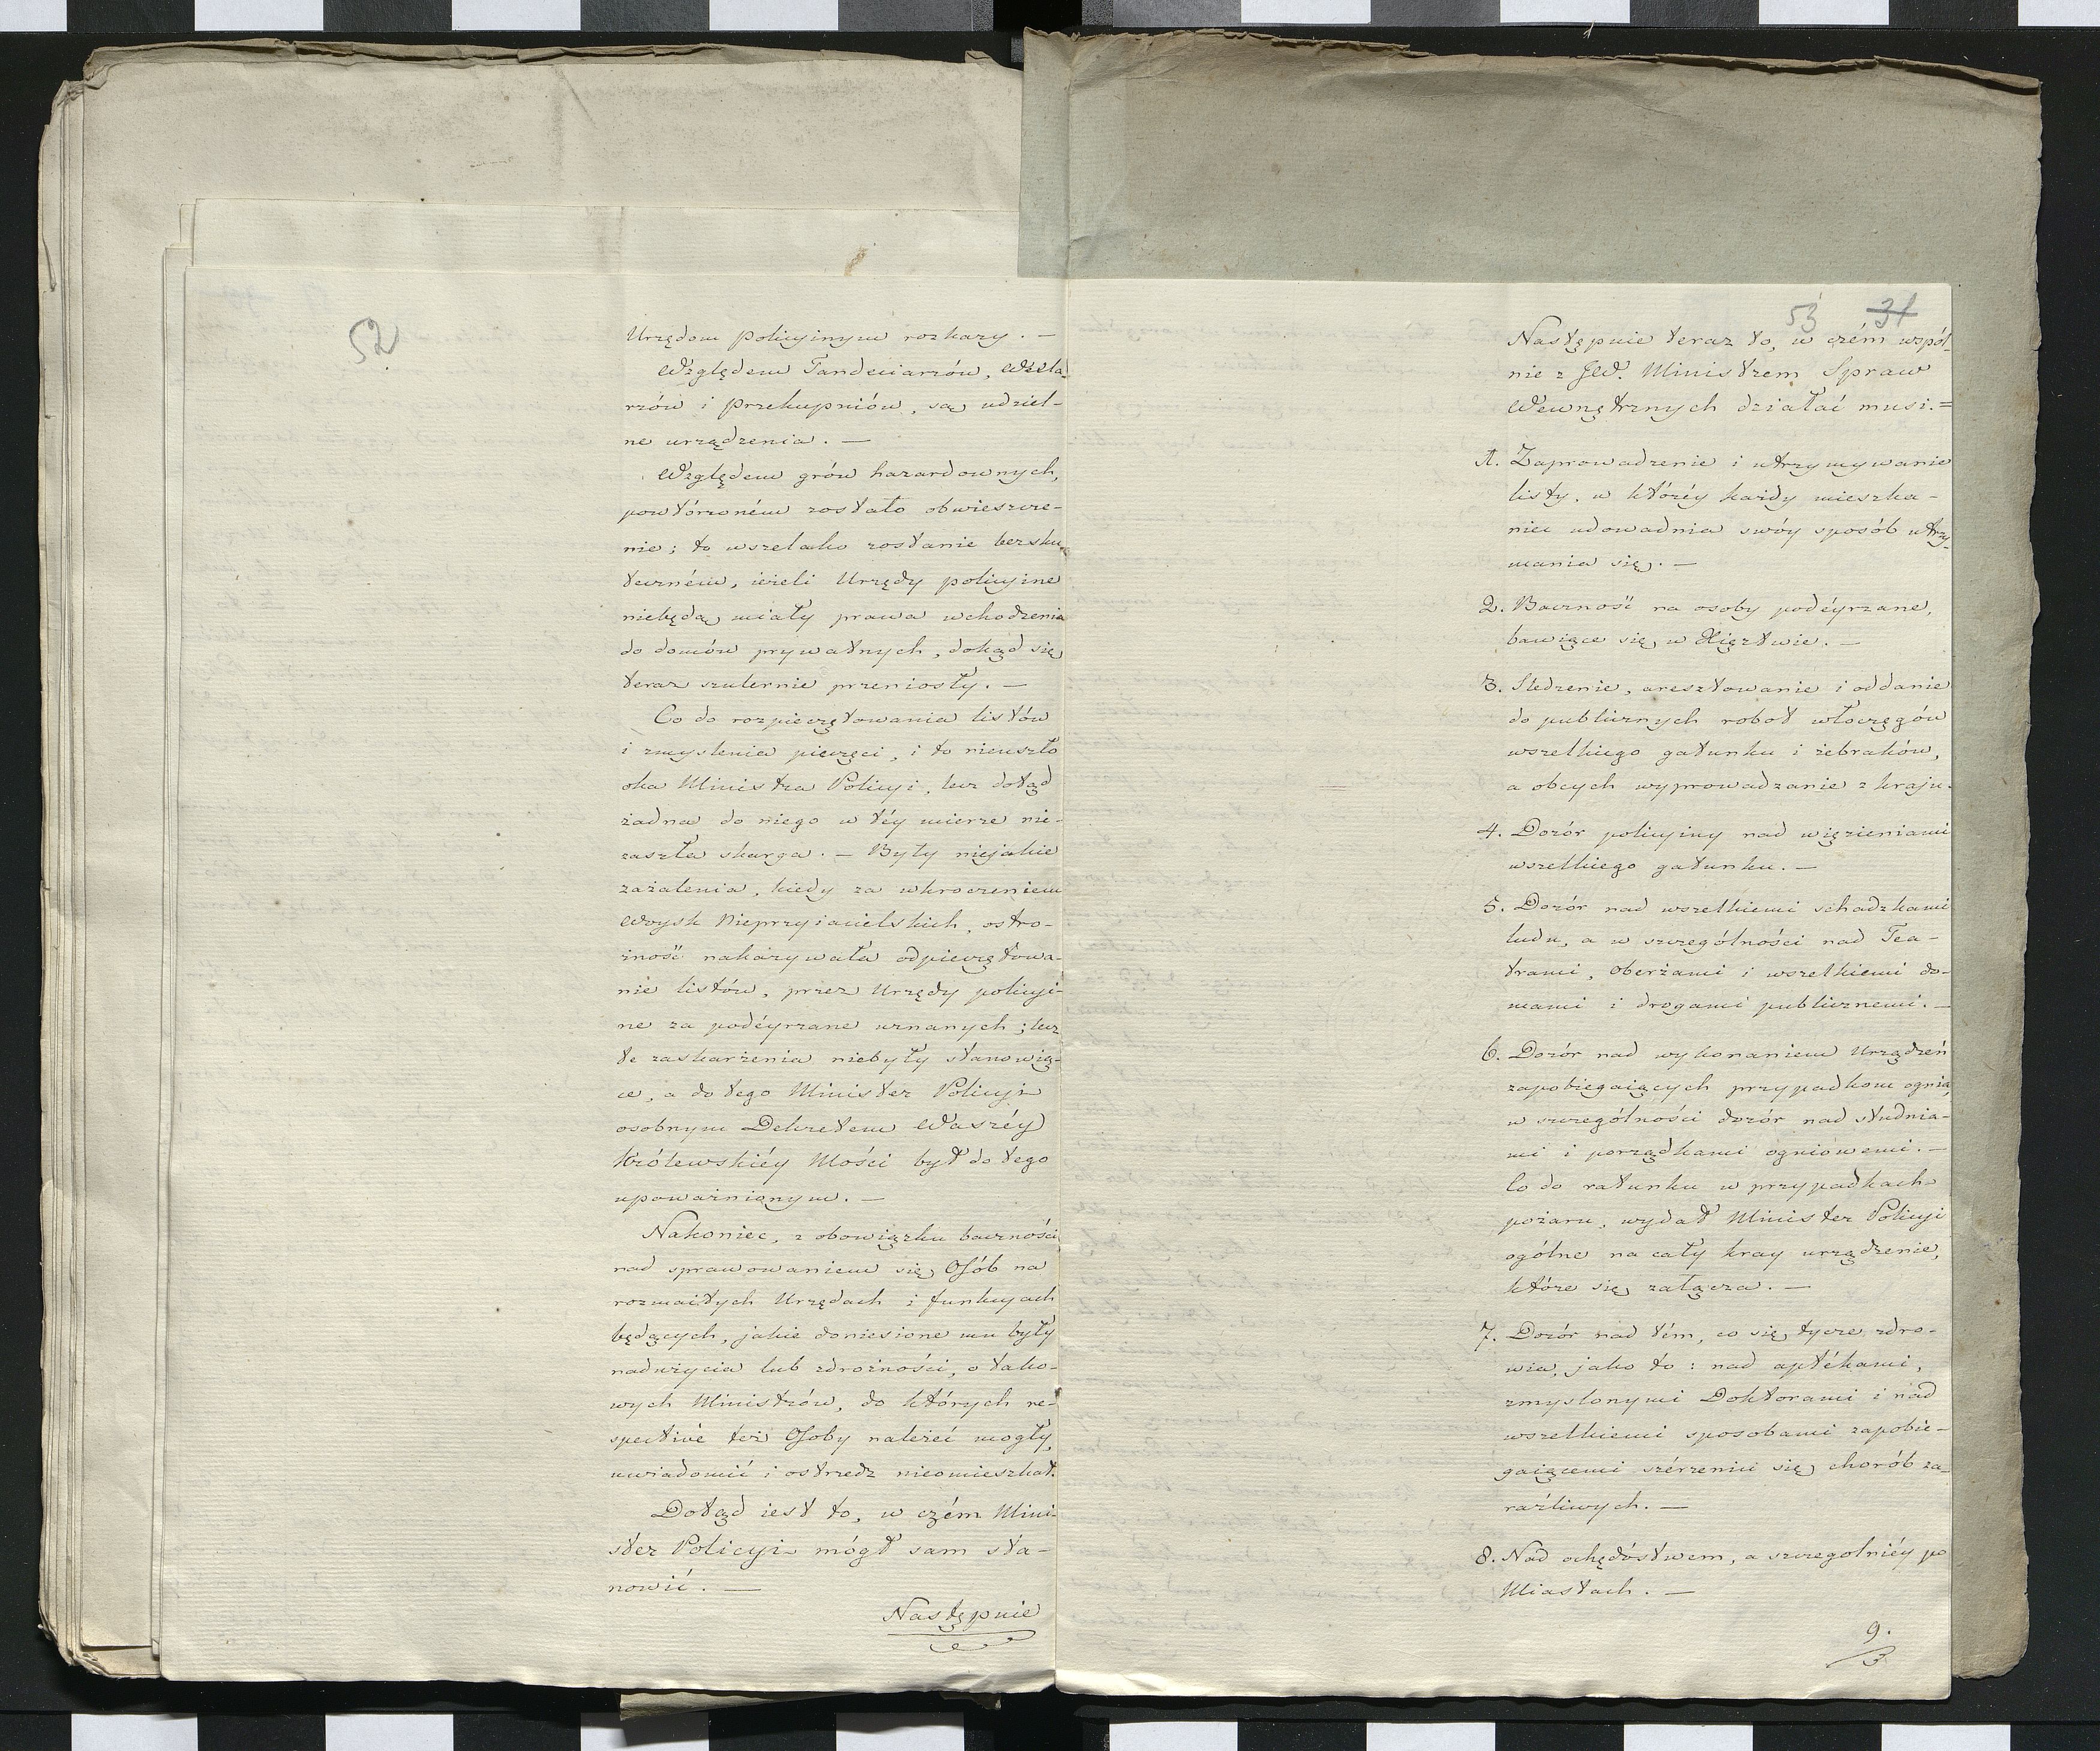 52
Urzędom Policyinym rozkazy. —
Względem Tandeciarzów, Wexla-
rzów i Przekupniów, są udziel-
ne urządzenia. —
Względem grów hazardownych,
powtórzoném zostało obwieszcze-
nie; to wszelako zostanie bezsku-
teczném, ieżeli Urzędy policyine
niebędą miały prawa wchodzenia
do domów prywatnych, dokąd się
teraz szulernie przeniosły. —
Co do rozpieczętowania listów
i zmyslenia pieczęci, i to nieuszło
oka Ministra Policyi, lecz dotąd
żadna do niego w téy mierze nie-
zaszła skarga. — Były niejakie
zażalenia, kiedy za wkroczeniem
Woysk Nieprzyiacielskich, ostro-
żność nakazywała odpieczętowa-
nie listów, przez Urzędy policyi-
ne za podéyrzane uznanych; lecz
te zaskarżenia niebyły stanowią-
ce, a do tego Minister Policyi
osobnym Dekretem Waszéy
Królewskiéy Mości był do tego
upoważnionym. —
Nakoniec, z obowiązku baczności
nad sprawowaniem się Osób na
rozmaitych Urzędach i funkcyach
będących, jakie doniesione mu były
nadużycia lub zdrożności, o tako-
wych Ministrów, do których re-
spectivè też Osoby należeć mogły,
uwiadomić i ostrzedz nieomieszkał.
Dotąd iest to, w czém Mini-
ster Policyi mógł sam sta-
nowić. —
Następnie
53 31
Następnie teraz to, w czém wspól-
nie z JW. Ministrem Spraw
Wewnętrznych działać musi. =
1. Zaprowadzenie i utrzymywanie
listy, w któréy każdy mieszka-
niec udowadnia swóy sposób utrzy-
mania się. —
2. Baczność na osoby podéyrzane,
bawiące się w Xięztwie. —
3. Sledzenie, aresztowanie i oddanie
do publicznych robot włoczęgów
wszelkiego gatunku i żebraków,
a obcych wyprowadzanie z kraju.
4. Dozór policyiny nad więzieniami
wszelkiego gatunku. —
5. Dozór nad wszelkiemi schadzkami
ludu, a w szczególności nad Tea-
trami, Oberżami i wszelkiemi do-
mami i drogami publicznemi. —
6. Dozór nad wykonaniem Urządzeń
zapobiegaiących przypadkom ognia,
w szczególności dozór nad studnia-
mi i porządkami ogniowemi. —
Co do ratunku w przypadkach
pożaru, wydał Minister Policyi
ogólne na cały kray urządzenie,
które się załącza. —
7. Dozór nad tém, co się tycze zdro-
wia, jako to: nad aptékami,
zmyslonymi Doktorami i nad
wszelkiemi sposobami zapobie-
gaiącemi szérzeniu się chorób za-
raźliwych. —
8. Nad ochędóstwem, a szczegolniéy po
Miastach. —
9.